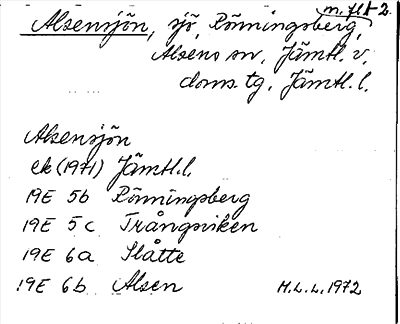 m. fl. 2.
Alsensjön, sjö, Rönningsberg,
Alsens sn, Jämtl. v.
doms. tg, Jämtl. l.
Alsensjön
ek (1971) Jämtl. l.
19E 5b Rönningsberg
19E 5c Trångsviken
19E 6a Slåtte
19E 6b Alsen M.L.L. 1972